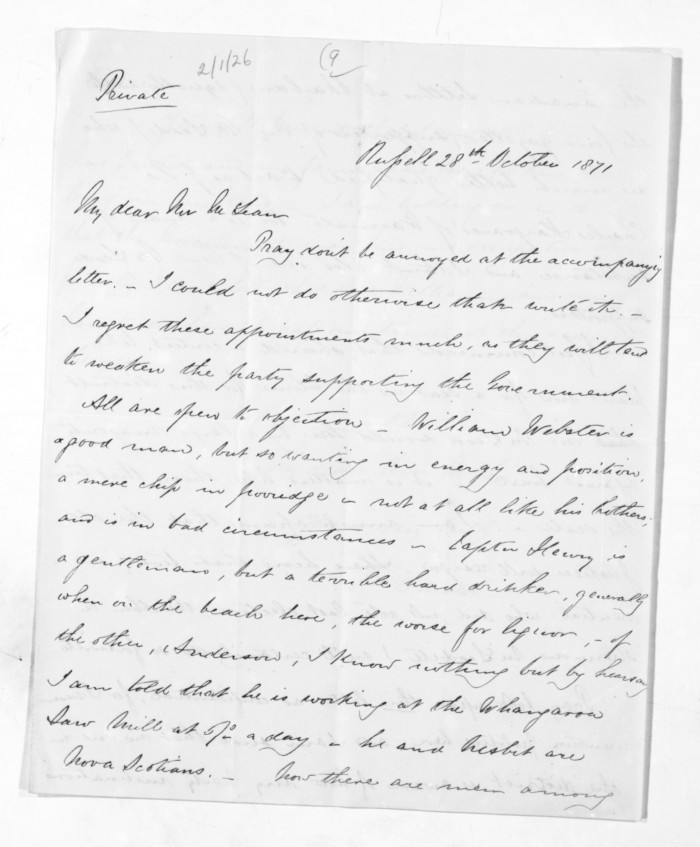 2/1/26 (9
Private
Russell 28th October 1871
My dear Mr McLean
Pray don't be annoyed at the accompanying
letter. – I could not do otherwise than write it. –
I regret these appointments much, as they will tend
to weaken the party supporting the Government.
All are open to objection – William Webster is
a good man, but so wanting in energy and position,
a mere chip in porridge – not at all like his brothers,
and is in bad circumstances – Captn Henry is
a gentleman, but a terrible hard drinker, generally
when on the beach here, the worse for liquor, – of
the other, Anderson, I know nothing but by hearsay
I am told that he is working at the Whangaroa
Saw Mill at 5/- a day – he and Nesbit are
Nova Scotians. – Now there are men among